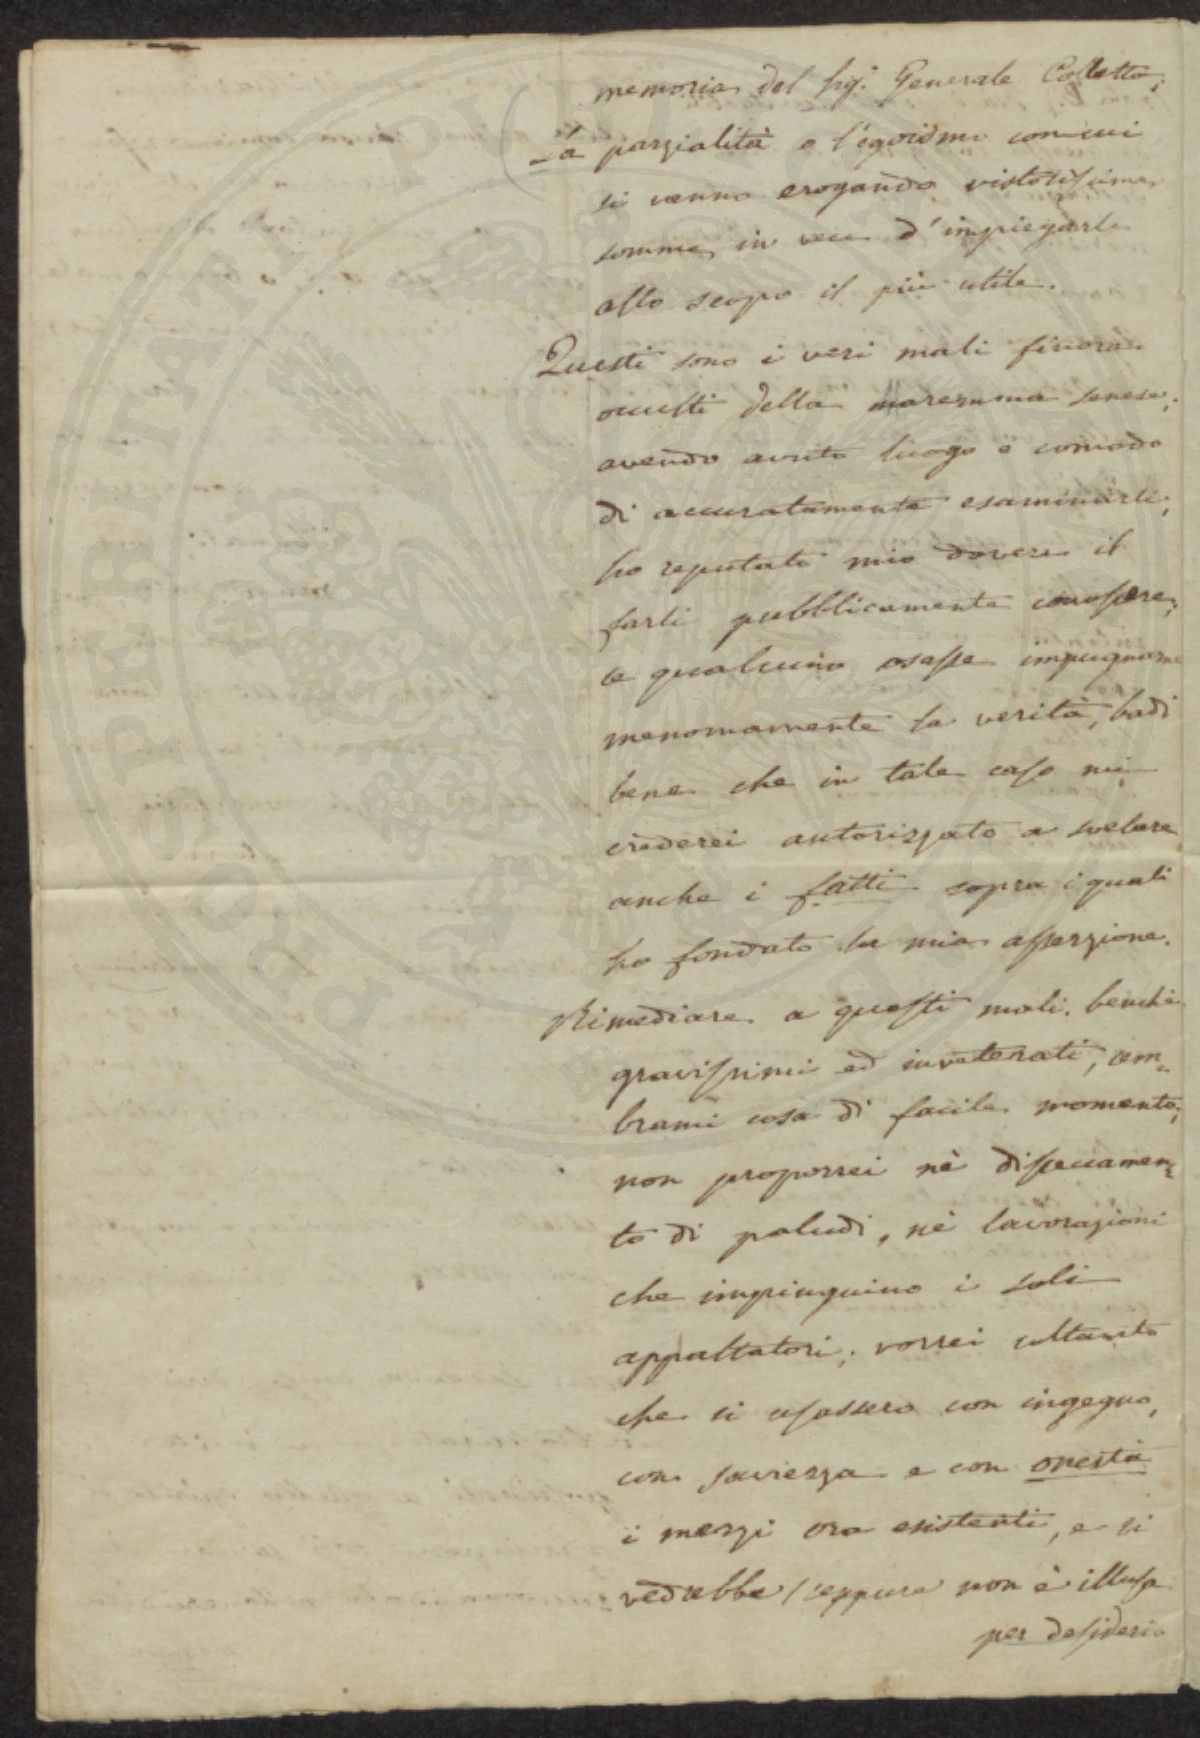 memoria del Sig.r Generale Colletta;
La parzialità e l'egoismo con cui
si vanno erogando vistosissime
somme, in vece d'impiegarle
allo scopo il più utile.
Questi sono i veri mali finora
occulti della maremma senese;
avendo avuto luogo e comodo
di accuratamente esaminarli,
ho reputato mio dovere il
farli pubblicamente conoscere,
e qualcuno osasse impugnarne
menomamente la verità, badi
bene che in tale caso mi
crederei autorizzato a svelare
anche i fatti sopra i quali
ho fondato la mia asserzione.
Rimediare a questi mali, benchè
gravissimi ed inveterati, sem=
brami cosa di facile momento;
non proporrei nè disseccamen=
to di paludi, nè lavorazioni
che impinguino i soli
appaltatori; vorrei soltanto
che si usassero con ingegno,
con saviezza e con onestà
i mezzi ora esistenti, e si
vedrebbe (seppure non è illusa
per desiderio
PROSPERITATI PUBLICAE